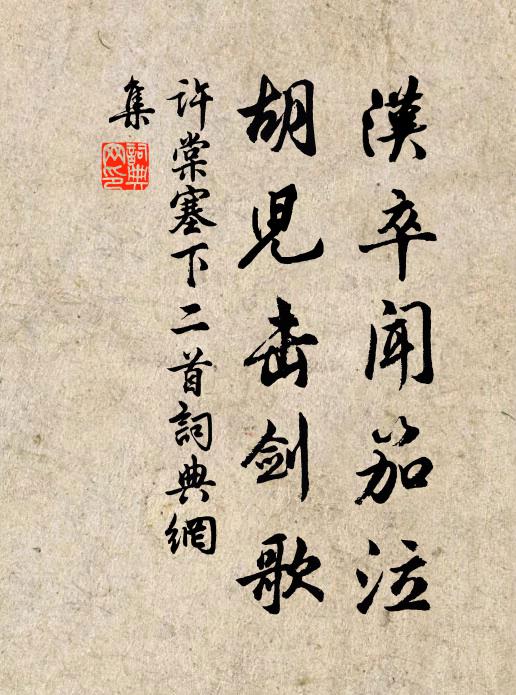 漢卒聞笳泣
胡兒击劍歌
許棠塞下二首詞典網
集
詞典
网印